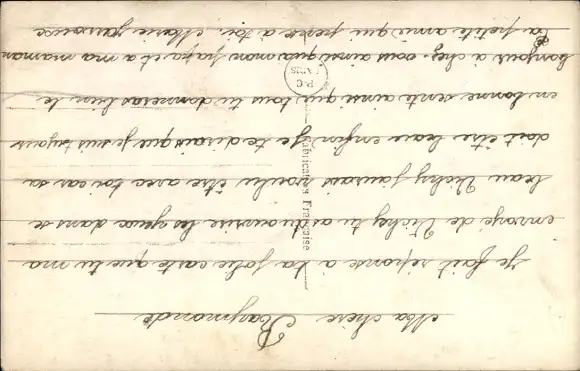 Ma chère Raymonde
Je fait reponse à ta jolie carte que tu ma
envoyé de Vichy tu a du ourire les yeux dans se
beau Vichy j'aurais voulu être avec toi car sa
doit être beau enfin je te dirais que je suis toujour
en bonne sente ainsi que tous tu donneras bien le
bonjour à chez vous ainsi qu'a mon papa et a ma maman
Ta petite amie qui pense à toi. Marie
Fabrication Française
P.C
PARIS